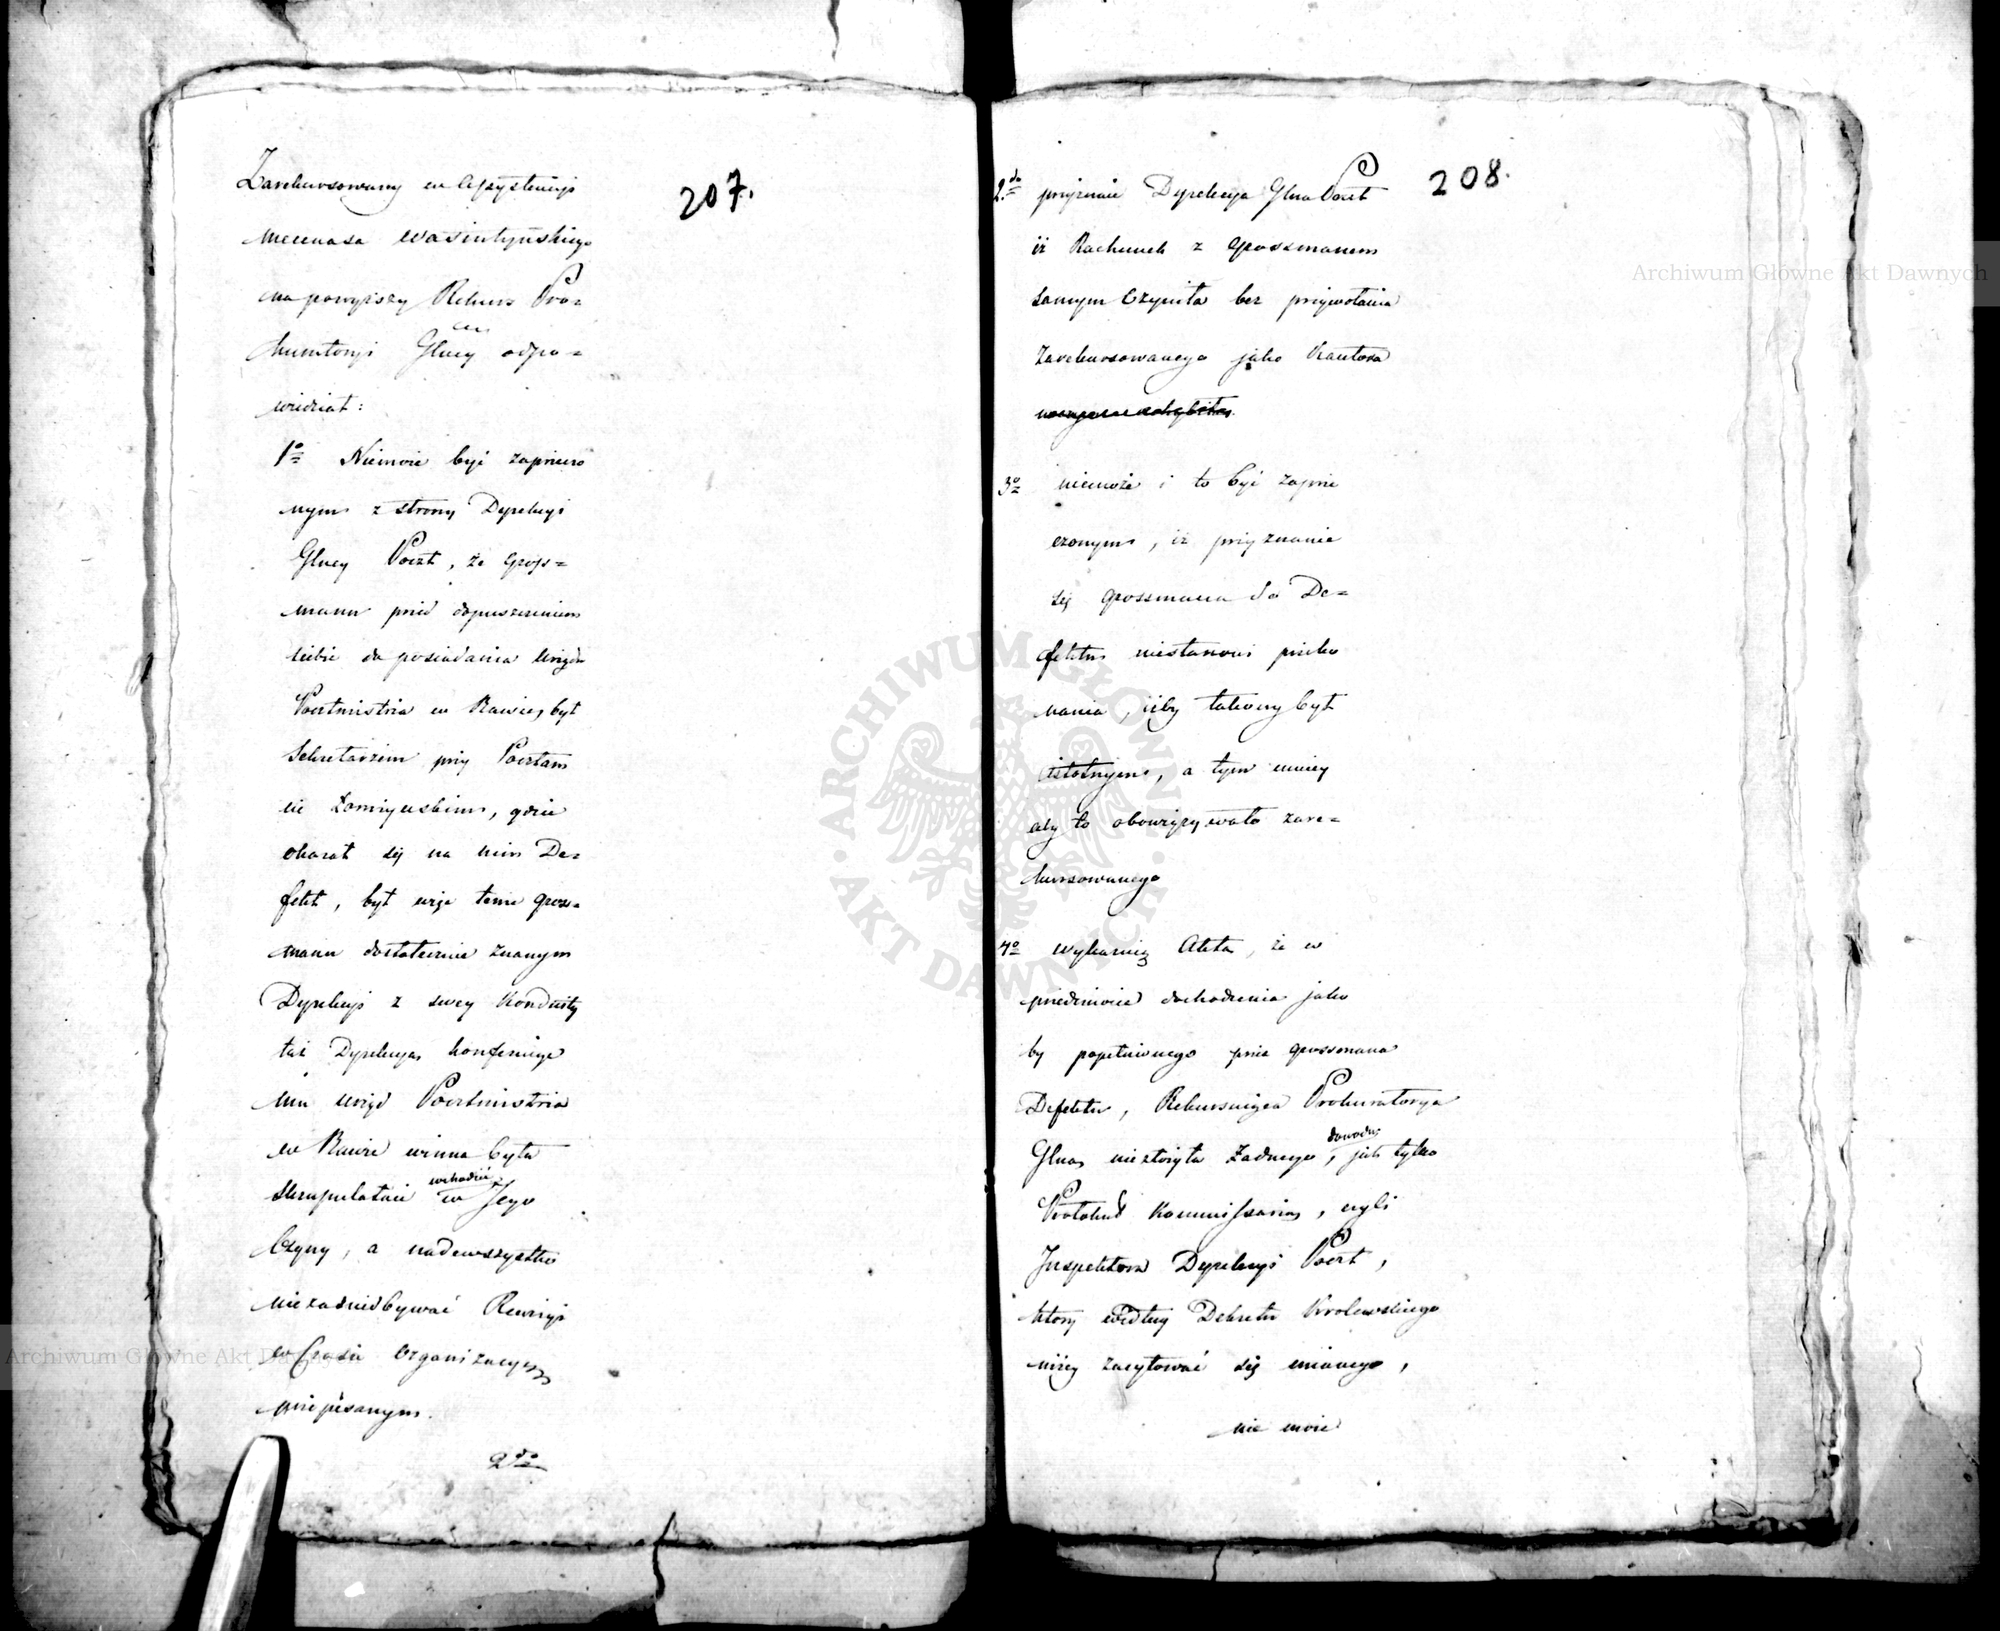 207.
Zarekursowany w Assystencyi
Mecenasa Wasiutyńskiego
na powyższy Rekurs Pro=
kuratoryi Głney odpo=
wiedział:
1o Niemoże być zaprzeczo
nym z strony Dyrekcyi
Głney Poczt, że Gross=
mann przed dopuszczeniem
siebie do posiadania Urzędu
Pocztmistrza w Rawie, był
Sekretarzem przy Pocztam
cie Łomżyńskim, gdzie
okazał się na nim De=
fekt, był więc tenże Gross=
mann dostatecznie znanym
Dyrekcyi z swey Konduity
taż Dyrekcya konferuiąc
mu urząd Pocztmistrza
w Rawie winna była
skrupulatnie wchodzić w Jego
Czyny, a nadewszystko
niezaniedbywać Rewizyi
w Czasie Organizacyą
przepisanym.
2do
208.
2do przyznaie Dyrekcya Głna Poczt
iż Rachunek z Grossmanem
samym Czyniła bez przywołania
Zarekursowanego jako Kautora
3o niemoże i to być zaprze
czonym, iż przyznanie
się Grossmana do De=
fektu niestanowi przeko
nania, iżby takowy był
istotnym, a tym mniey
aby to obowiązywało zare=
kursowanego
4o wykazuią Akta, że w
przedmiocie dochodzenia jako
by popełnionego przez Grossmana
Defektu, Rekursuiąca Prokuratorya
Głna, niezłożyła żadnego dowodu, jak tylko
Protokuł Kommissarza, czyli
Inspektora Dyrekcyi Poczt,
który według Dekretu Krolewskiego
niżey zacytować się maiącego,
nie może
Archiwum Główne Akt Dawnych
ARCHIWUM GŁÓWNE · AKT DAWNYCH ·
Archiwum Główne Akt Dawnych